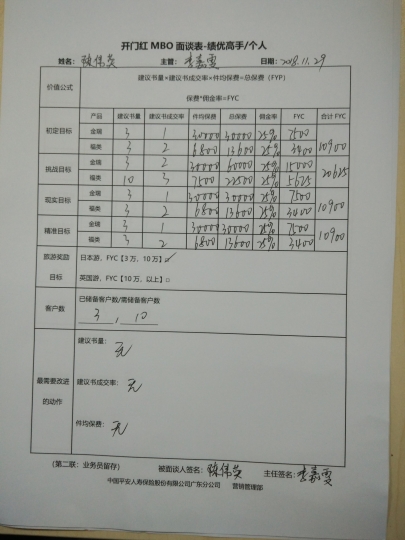 开门红 MBO 面谈表-绩优高手/个人
姓名：陈伟英 主管：李嘉雯 日期：2018.11.29
价值公式
建议书量×建议书成交率×件均保费=总保费（FYP）
保费*佣金率=FYC
产品 建议书量 建议书成交率 件均保费 总保费 佣金率 FYC 合计 FYC
初定目标
金瑞 3 1 30000 30000 25% 7500
福类 3 2 6800 13600 25% 3400
10900
挑战目标
金瑞 3 2 30000 60000 25% 15000
福类 10 3 7500 22500 25% 5625
20625
现实目标
金瑞 3 1 30000 30000 25% 7500
福类 3 2 6800 13600 25% 3400
10900
精准目标
金瑞 3 1 30000 30000 25% 7500
福类 3 2 6800 13600 25% 3400
10900
旅游奖励
目标
日本游，FYC【3 万，10 万】☑
英国游，FYC【10 万，以上】□
客户数
已储备客户数/需储备客户数
3 , 10
最需要改进
的动作
建议书量：无
建议书成交率：无
件均保费：无
（第二联：业务员留存） 被面谈人签名：陈伟英 主任签名：李嘉雯
中国平安人寿保险股份有限公司广东分公司 营销管理部